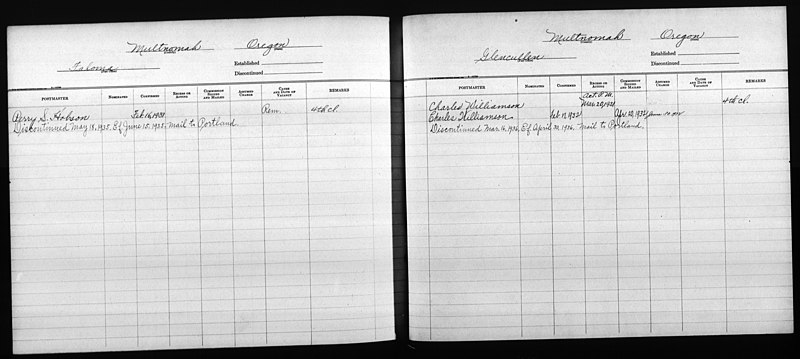 Multnomah Oregon
Faloma
Established
Discontinued
POSTMASTER NOMINATED CONFIRMED RECESS OR ACTING COMMISSION SIGNED AND MAILED ASSUMED CHARGE CAUSE AND DATE OF VACANCY REMARKS
Perry S. Hobson Feb 16, 1931 Rem. 4th Cl.
Discontinued May 18, 1935. Ef June 15, 1935. mail to Portland
Multnomah Oregon
Glencullen
Established
Discontinued
POSTMASTER NOMINATED CONFIRMED RECESS OR ACTING COMMISSION SIGNED AND MAILED ASSUMED CHARGE CAUSE AND DATE OF VACANCY REMARKS
Act. P.M.
Charles Williamson 4th Cl.
Charles Williamson Apr. 20, 1932
Discontinued Mar. 16, 1936. Ef April 30, 1936. Mail to Portland.